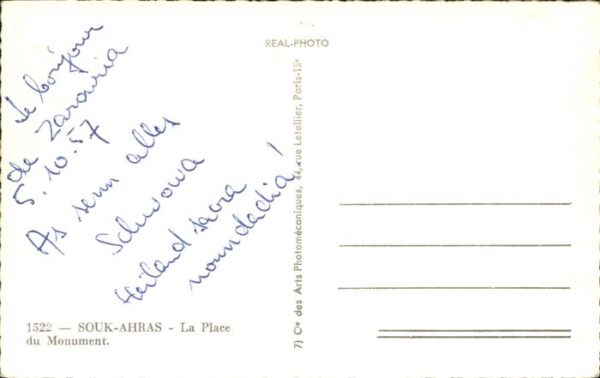 Le bonjour
de Zarouria
5.10.57
As senn alles
Schwowa
Heiland sacra
noundadia!
REAL-PHOTO
7) Cie des Arts Photomécaniques, 44, rue Letellier, Paris-15e
1522 — SOUK-AHRAS - La Place
du Monument.